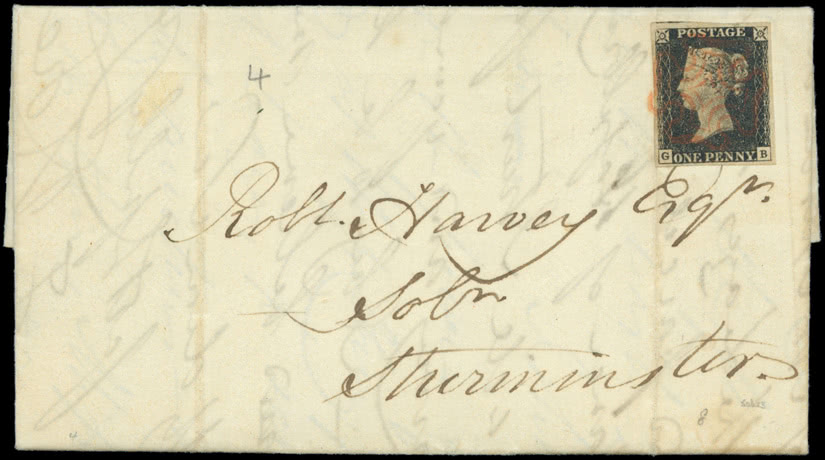 POSTAGE
G ONE PENNY B
4
Robt. Harvey Esqr.
Solr.
Sturminster.
8
4
8